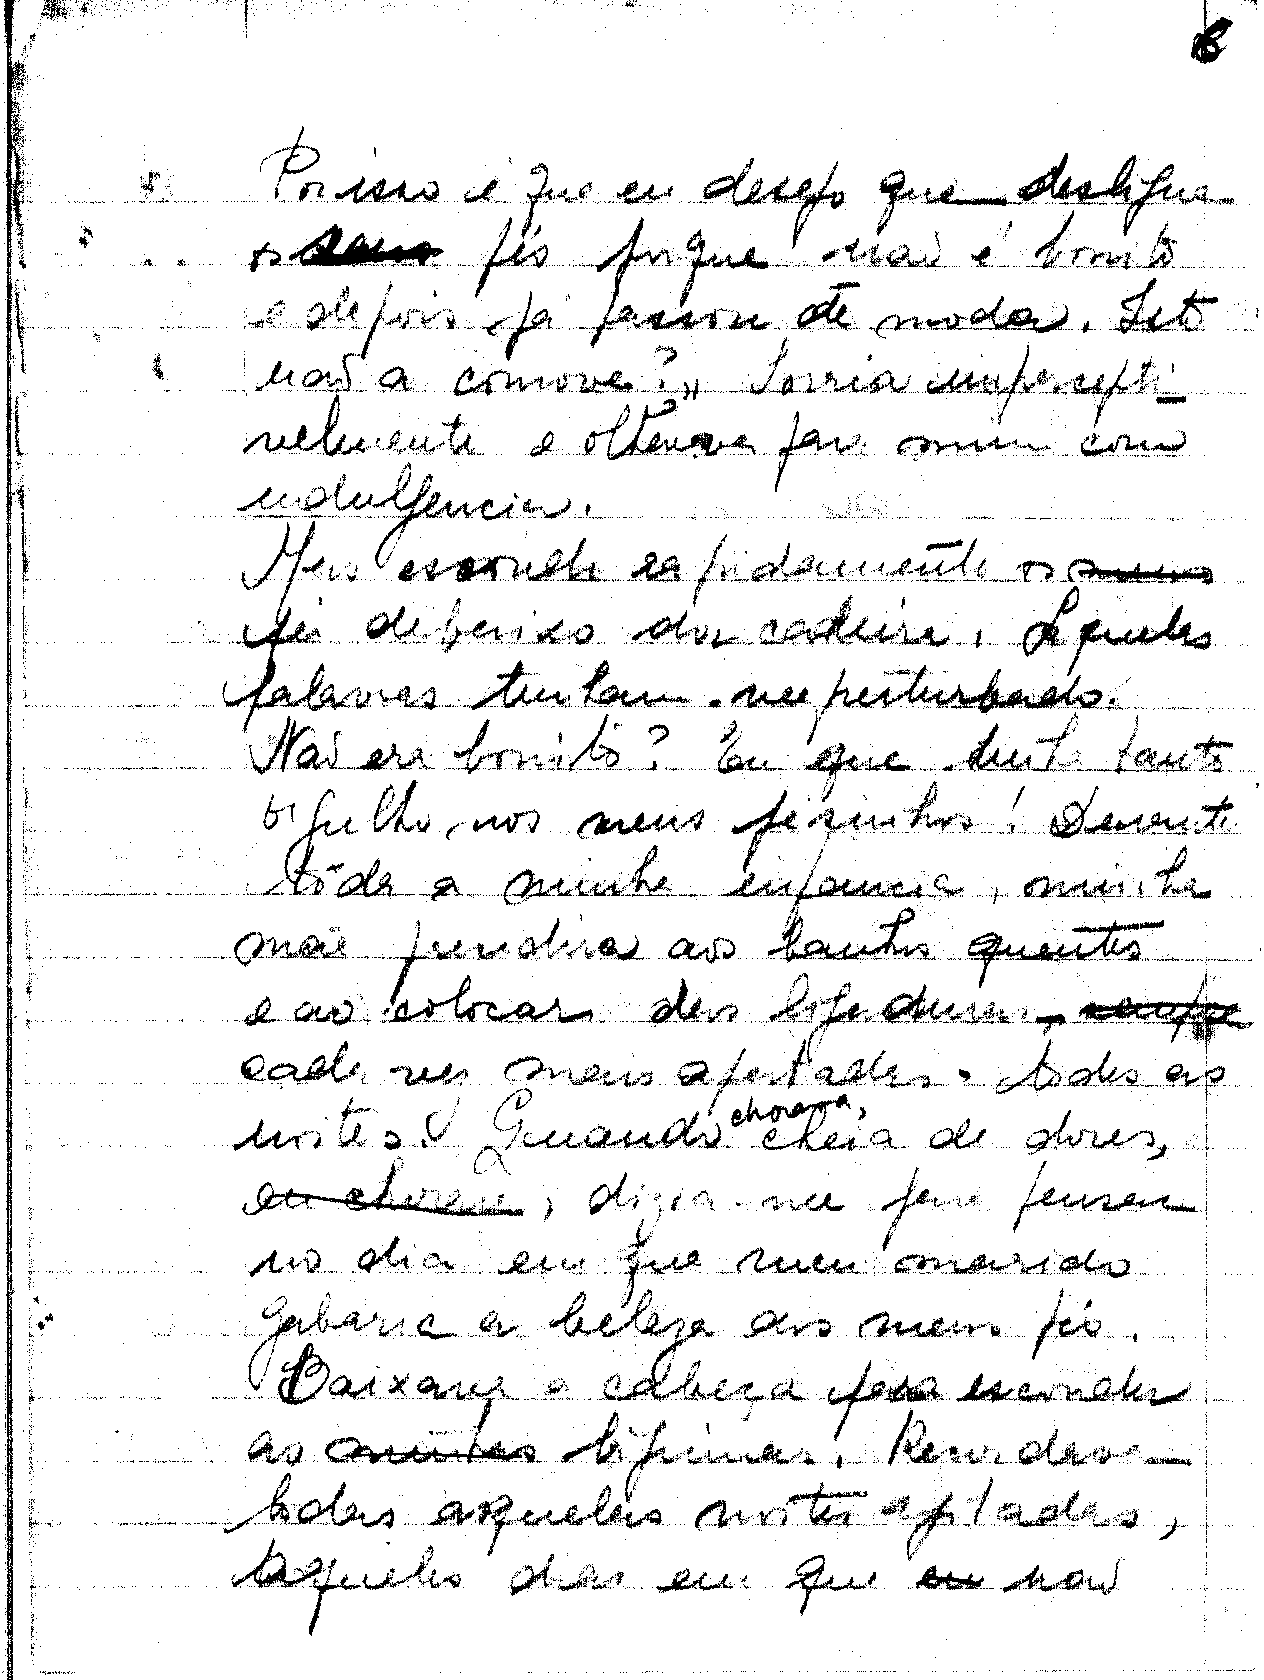 Porisso é que eu desejo que desligue
os seus pés porque naõ é bonito
e depois já passou de moda. Isto
naõ a comove?" Sorria impercepti-
velmente e olhava para mim com
indulgencia.
Mas escondi rapidamente os meus
pés debaixo da cadeira. Aquelas
palavras tinham-me perturbado.
Naõ era bonito? Eu que tinha tanto
orgulho nos meus pésinhos! Durante
tôda a minha infancia, minha
maẽ presidira aos banhos quentes
e ao colocar das ligaduras, sempre
cada vez mais apertadas. tôdas as
noites. Quando chorava, cheia de dores,
eu chorava, dizia-me para pensar
no dia em que meu marido
gabaria a beleza dos meus pés.
Baixava a cabeça para esconder
as minhas lágrimas. Recordava
todas aquelas noites agitadas,
aqueles dias em que eu naõ